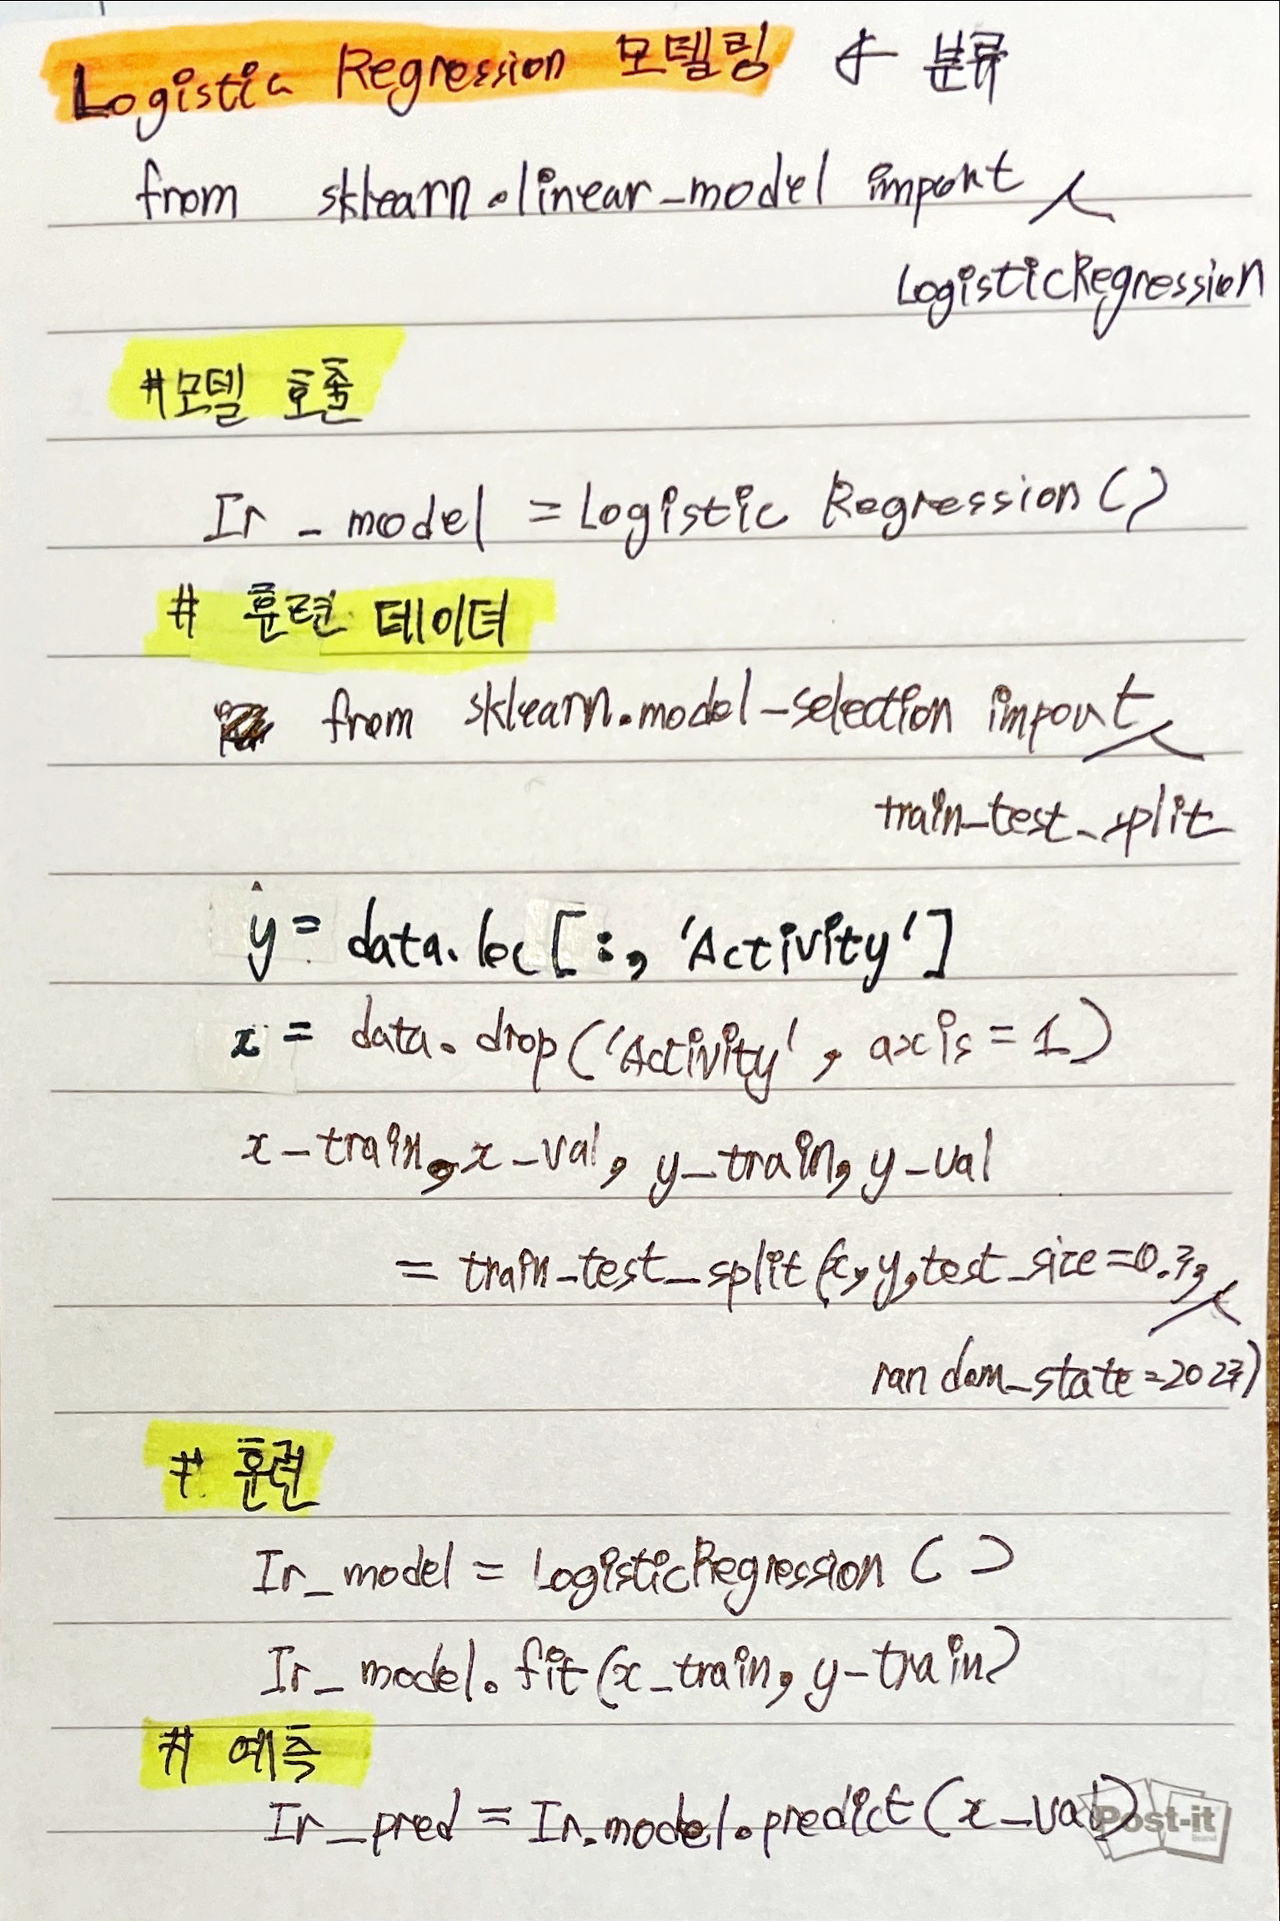 Logistic Regression 모델링 & 분류
from sklearn.linear_model import
LogisticRegression
#모델 호출
Ir_model = Logistic Regression()
# 훈련 데이터
from sklearn.model-selection import
train_test_split
y = data.loc[:, 'Activity']
x = data.drop('Activity', axis=1)
x-train, x-val, y_train, y-val
= train-test_split(x, y, test_size=0.3,
random_state=2023)
# 훈련
Ir_model = LogisticRegression ()
Ir_model.fit(x_train, y-train)
# 예측
Ir_pred = Ir.model.predict(x_val)
Post-it